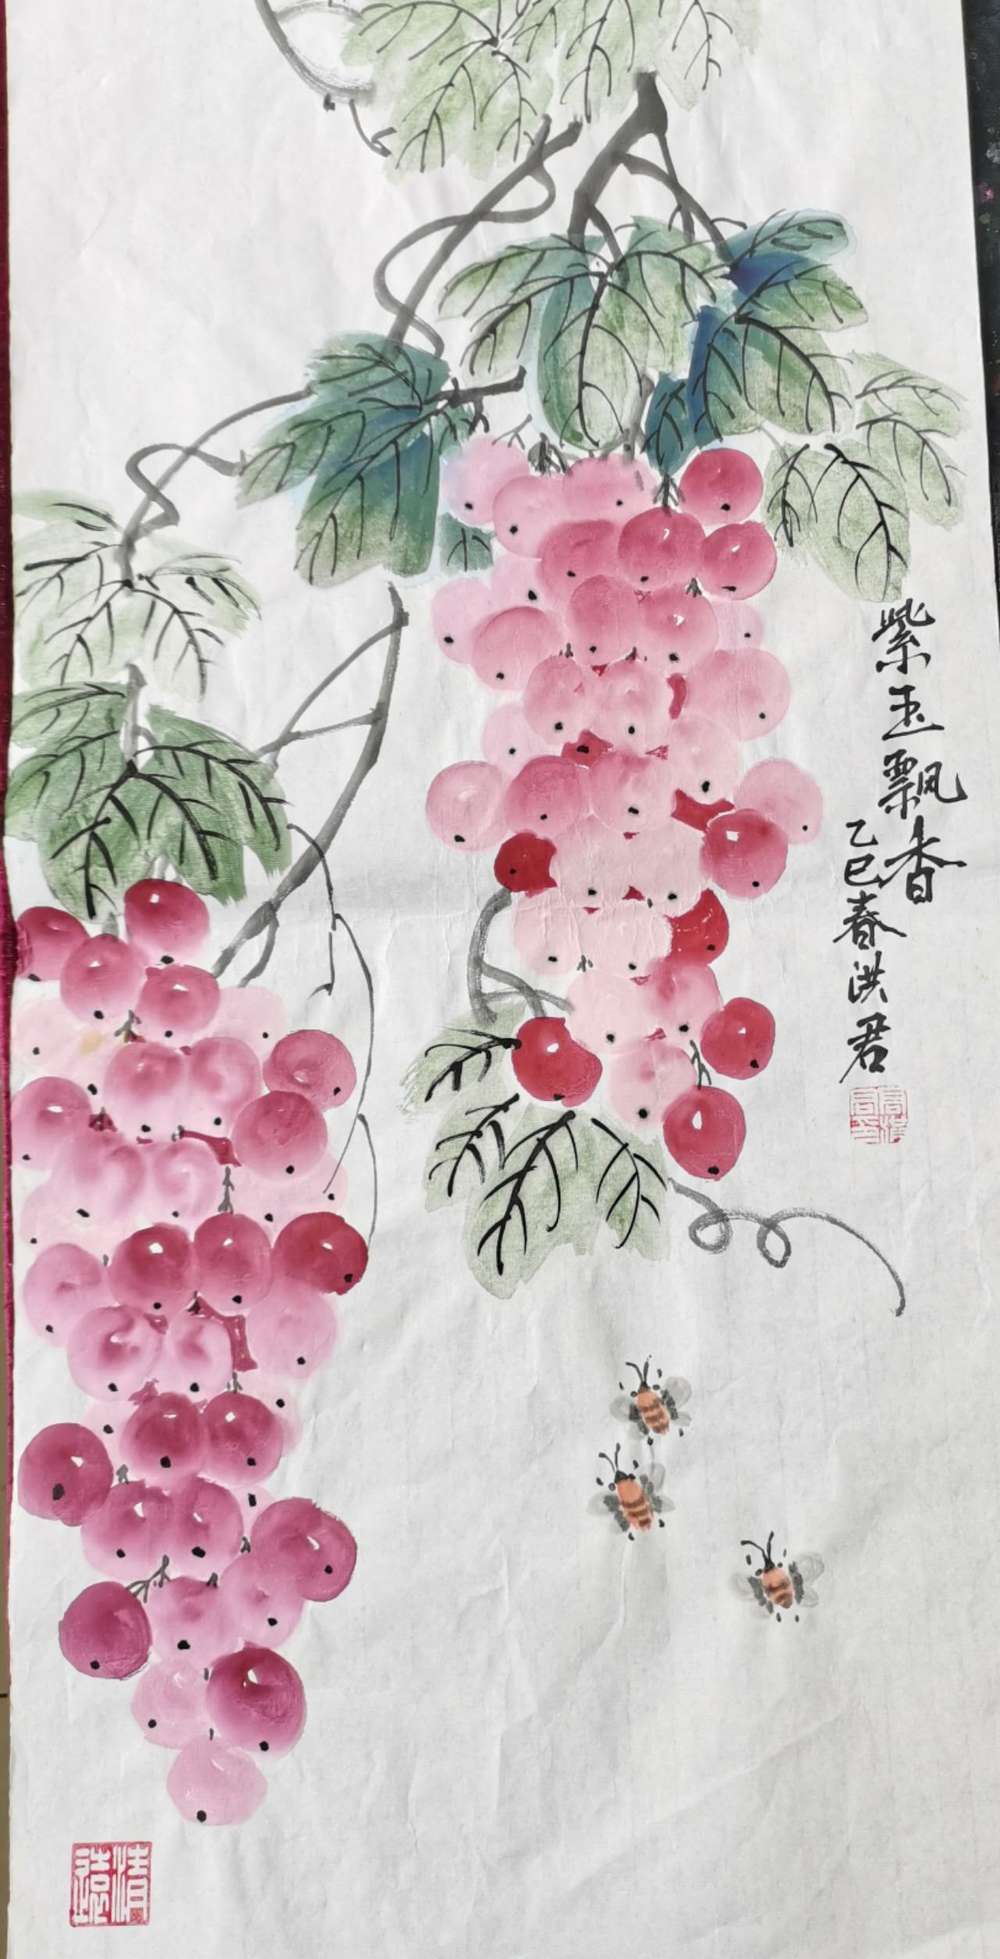 紫玉飘香
乙巳春洪君
清
远